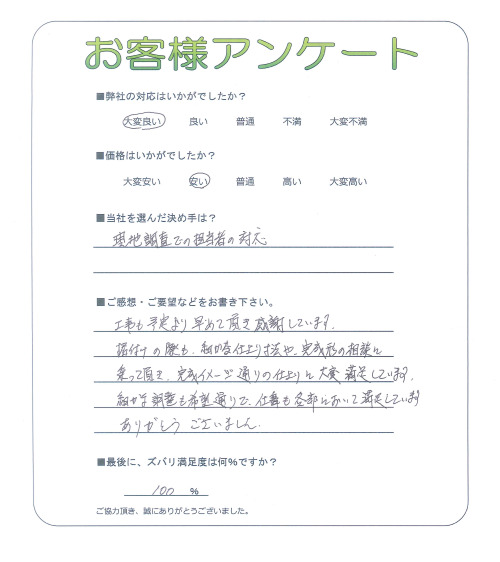 お客様アンケート
■弊社の対応はいかがでしたか？
大変良い 良い 普通 不満 大変不満
■価格はいかがでしたか？
大変安い 安い 普通 高い 大変高い
■当社を選んだ決め手は？
現地調査での担当者の対応
■ご感想・ご要望などをお書き下さい。
工事も予定より早めて頂き感謝しています。
据付けの際も、細かな仕上り寸法や、完成形の相談に
乗って頂き、完成イメージ通りの仕上りに大変満足しています。
細かな調整も希望通りで、仕事も全部において満足しています
ありがとうございました。
■最後に、ズバリ満足度は何%ですか？
100 %
ご協力頂き、誠にありがとうございました。